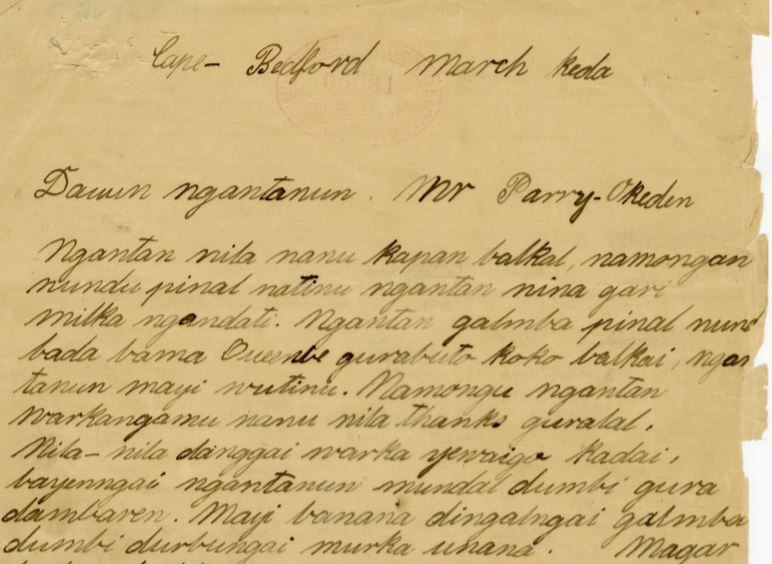 Cape- Bedford March Keda
Dawun ngantanun. Mr Parry-Okeden
Ngantan nila nanu kapan balkal, namongan
nundu pinal natinu ngantan nina gari
milka ngandati. Ngantan galmba pinal nund
bada bama Queenbe gurabuto koko balkai, ngan
tanun mayi wutinu. Namongu ngantan
warkangamu nanu nila thanks guralal.
Nila-nila danggai warka yewaigo kadai,
bayenngai ngantanun mundal dumbi gura
dambaren. Mayi banana dingalngai galmba
dumbi durbungai murka unana. Magar